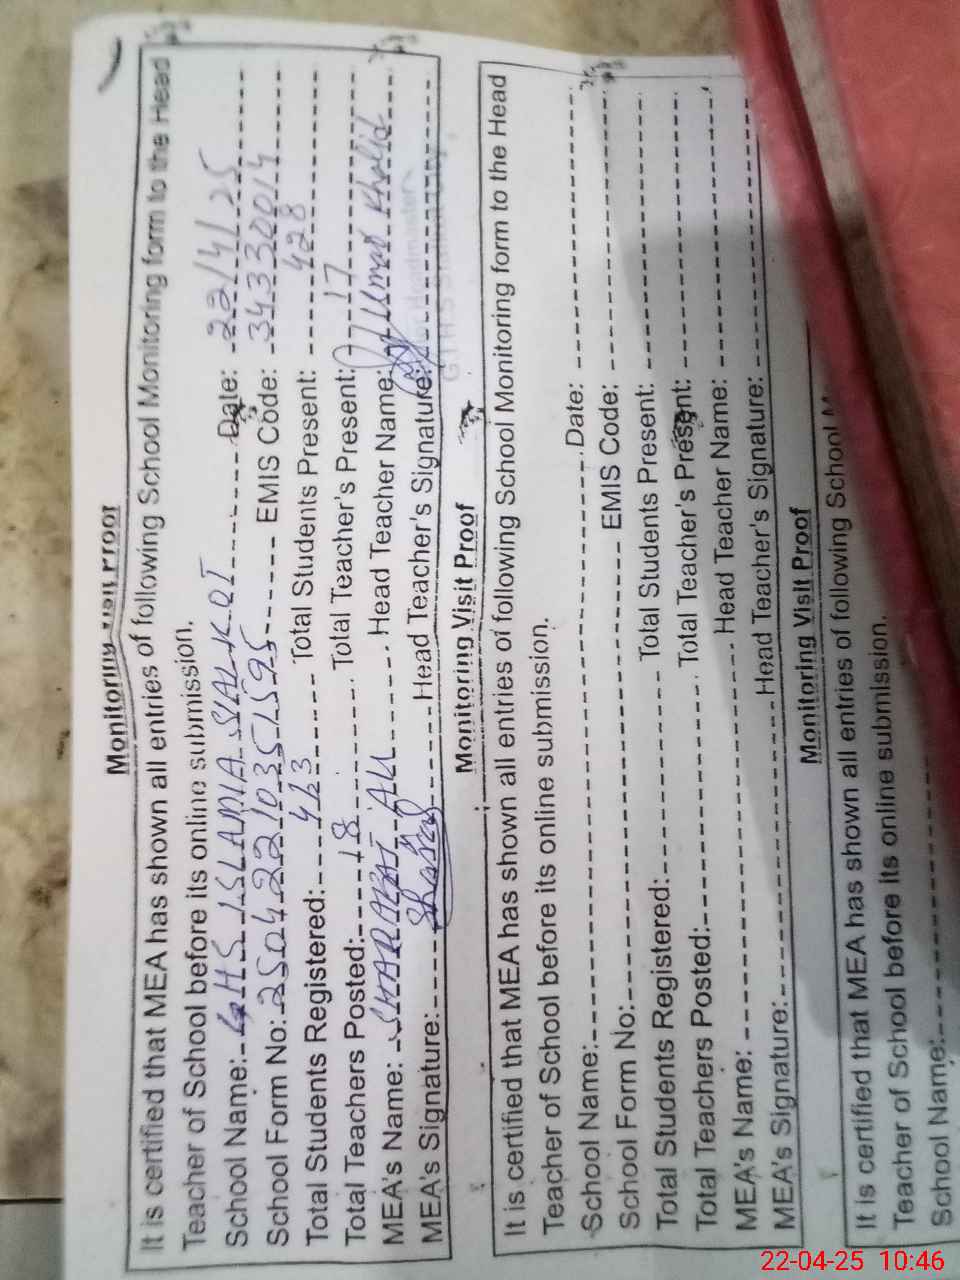 Monitoring Visit Proof
It is certified that MEA has shown all entries of following School Monitoring form to the Head
Teacher of School before its online submission.
School Name: GHS ISLAMIA SIALKOT Date: 22/4/25
School Form No: 25042210351595 EMIS Code: 34330014
Total Students Registered: Total Students Present: 428
Total Teachers Posted: 18 Total Teacher's Present: 17
MEA's Name: SHARAFAT ALI Head Teacher Name: Umar Khalid
MEA's Signature: Head Teacher's Signature:
Headmaster
Monitoring Visit Proof
It is certified that MEA has shown all entries of following School Monitoring form to the Head
Teacher of School before its online submission.
School Name: Date:
School Form No: EMIS Code:
Total Students Registered: Total Students Present:
Total Teachers Posted: Total Teacher's Present:
MEA's Name: Head Teacher Name:
MEA's Signature: Head Teacher's Signature:
Monitoring Visit Proof
It is certified that MEA has shown all entries of following School
Teacher of School before its online submission.
School Name:
22-04-25 10:46